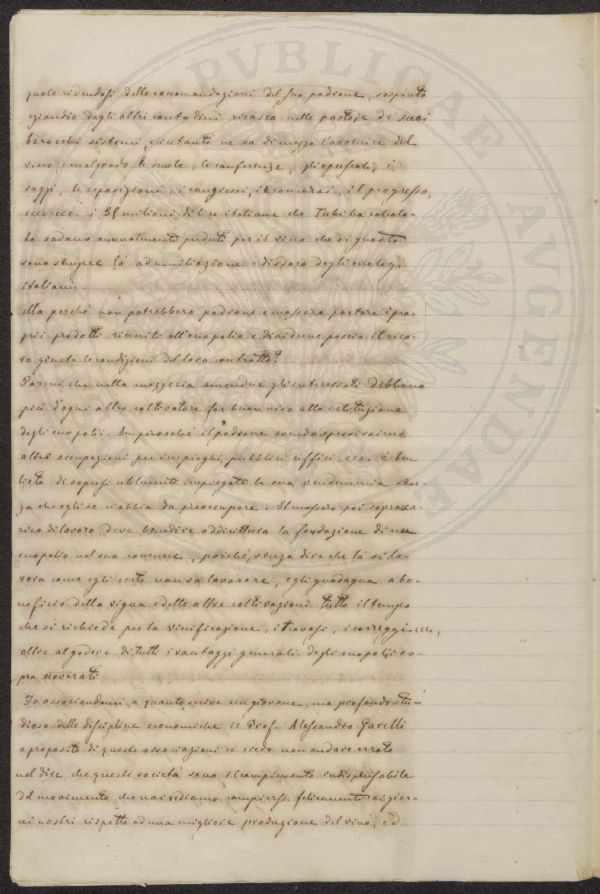 quale ridendosi delle raccomandazioni del suo padrone, sospinto
eziandio dagli altri contadini ricasca nelle pastoje de' suoi
barocchi sistemi, e intanto ne va di mezzo l'avvenire del
vino, e malgrado le scuole, le conferenze, gli opuscoli, i
saggi, le esposizioni, i congressi, i concorsi, il progresso,
ecc. ecc. i 38 milioni di lire italiane che Tubi ha calcola-
to vadano annualmente perduti per il vino che si guasta
sono sempre là ad umiliazione e disdoro degli enologi
italiani.
Ma perchè non potrebbero padrone e massaro portare i pro-
prii prodotti riuniti all'enopolio e dividerne poscia il rica-
vo giusta le condizioni del loro contratto?
Parmi che nella mezzeria amendue gli interessati debbano
più d'ogni altro coltivatore far buon viso alla istituzione
degli enopolii. Imperocchè il padrone avendo spessissimo
altre occupazioni per impieghi, pubblici uffici, ecc. è ben
lieto di sapersi utilmente impiegata la sua vendemmia sen-
za che egli se n'abbia da preoccupare. Il massaro poi sopracca-
rico di lavoro, deve benedire addirittura la fondazione di un
enopolio nel suo comune, poichè, senza dire che là si la-
vora come egli certo non sa lavorare, egli guadagna a be-
neficio della vigna e delle altre coltivazioni tutto il tempo
che si richiede per la vinificazione, i travasi, i
oltre al godere di tutti i vantaggi generali degli enopolii so-
pra noverati.
Io associandomi a quanto scrive un giovane, ma profondo stu-
dioso delle discipline economiche il Prof. Alessandro Garelli
a proposito di queste associazioni credo non andare errato
nel dire che queste società sono il compimento indispensabile
del movimento che noi vediamo compiersi felicemente ai gior-
ni nostri rispetto ad una migliore produzione del vino, ed
PVBLICAE
AVGENDAE